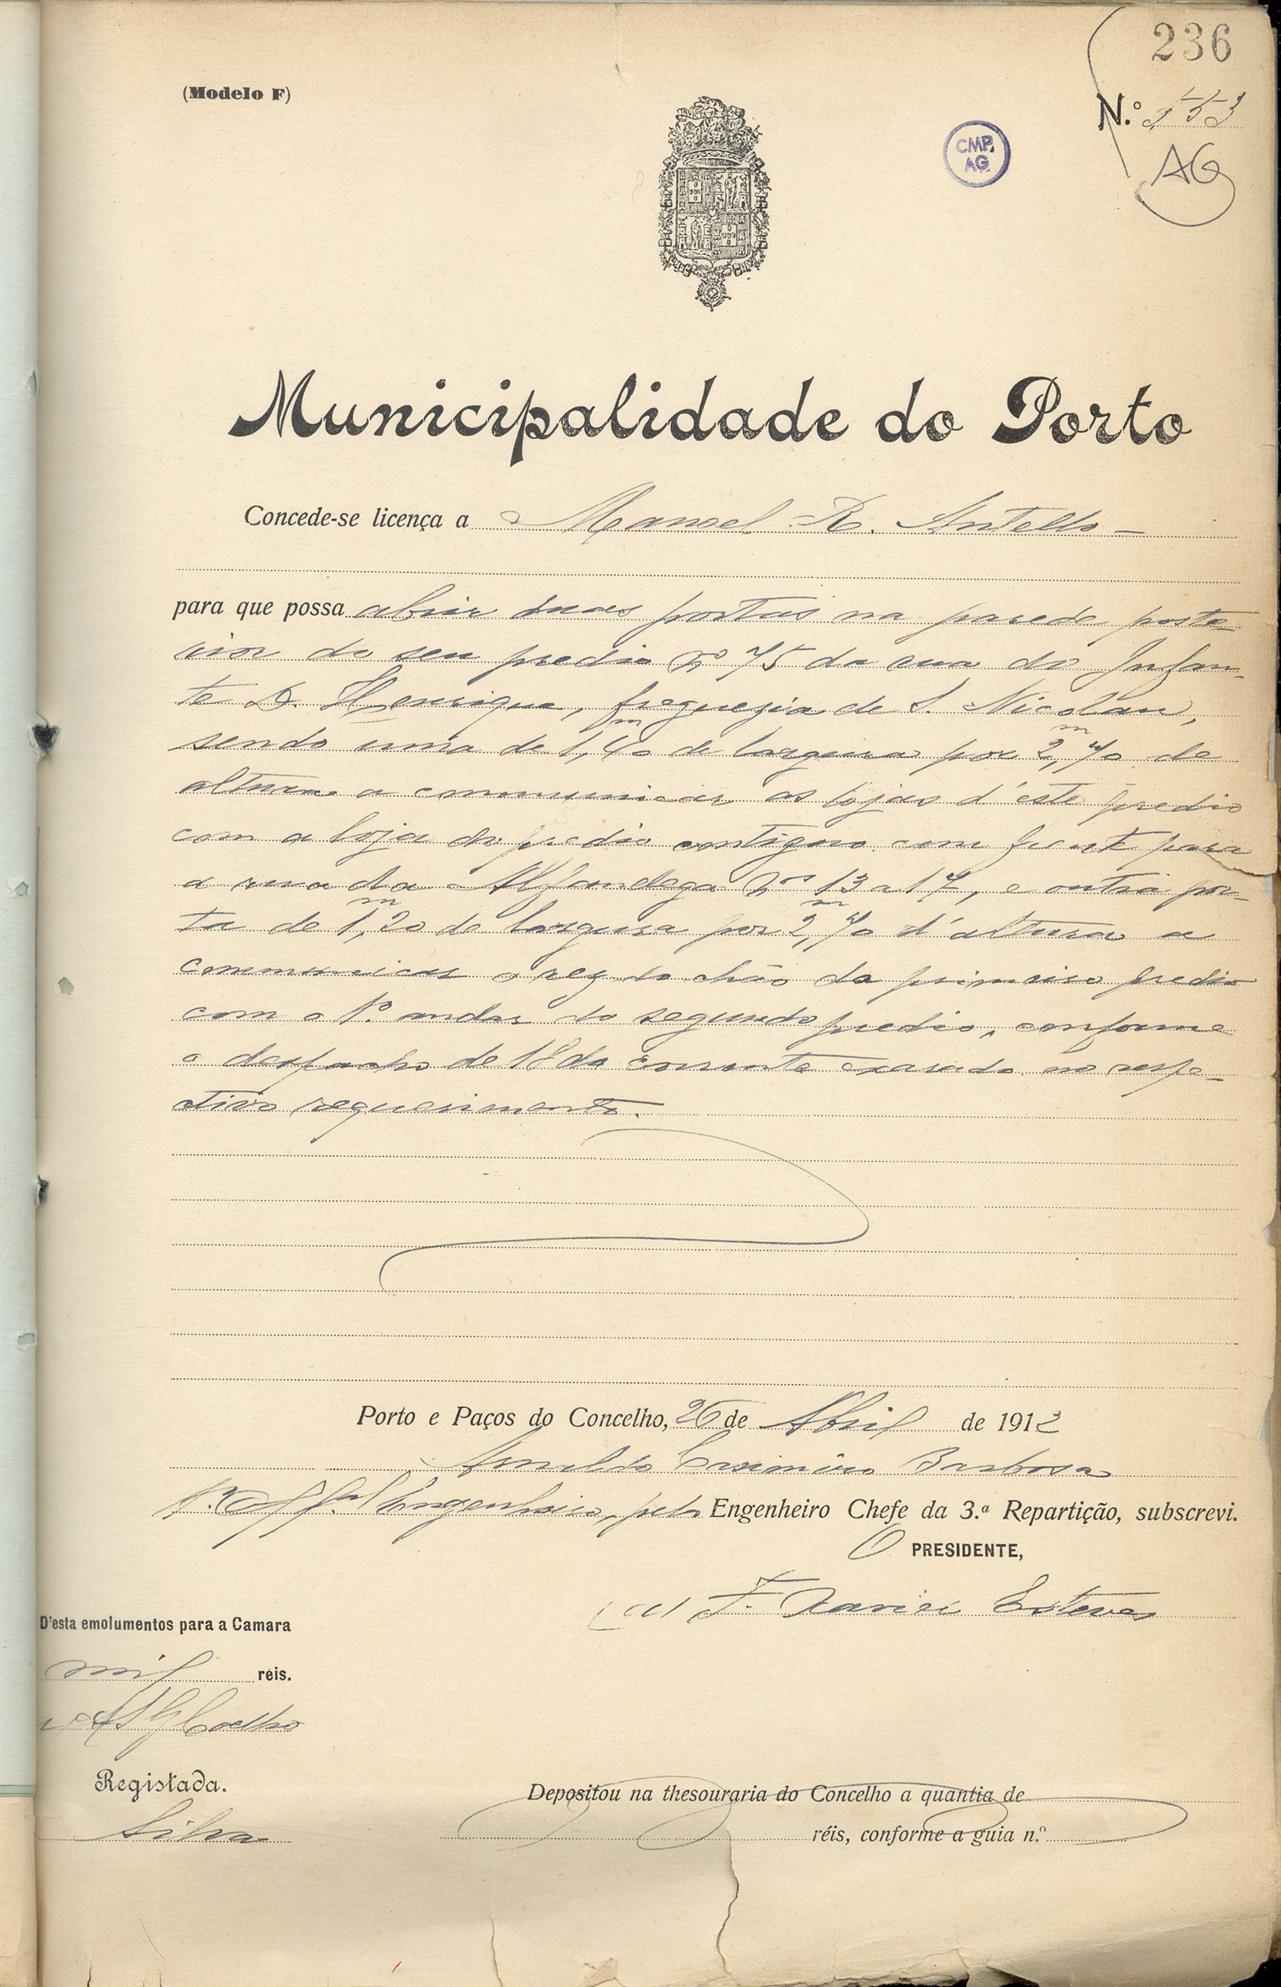 236
(Modelo F)
N.º 553
CMP.
AG
AG
Municipalidade do Porto
Concede-se licença a Manoel R. Antello
para que possa abrir duas portas na parede poste-
rior do seu predio nº 75 da rua do Infan-
te D. Henrique, freguezia de S. Nicolau,
sendo uma de 1,m40 de largura por 2,m70 de
altura a communicar as lojas d'este predio
com a loja do predio contiguo com frente para
a rua da Alfandega nos 13 a 17, e outra por-
ta de 1,m20 de largura por 2,m70 d'altura a
communicar o rez do chão do primeiro predio
com o 1º. andar do segundo predio, conforme
o despacho de 18 do corrente exarado no respe-
ctivo requerimento.
Porto e Paços do Concelho, 26 de Abril de 1912
Arnaldo Casimiro Barbosa
Engenheiro, pelo Engenheiro Chefe da 3.ª Repartição, subscrevi.
O PRESIDENTE,
(a) F. Xavier Esteves
D'esta emolumentos para a Camara
mil réis.
Coelho
Registada.
Silva
Depositou na thesouraria do Concelho a quantia de
réis, conforme a guia n.º